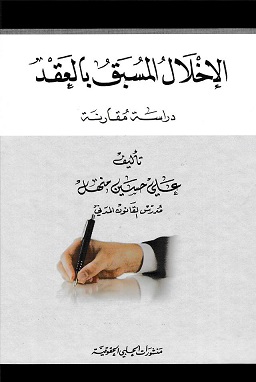 الإخلال المسبق بالعقد
دراسة مقارنة
تأليف
علي حسين منهل
مدرس القانون المدني
منشورات الحلبي الحقوقية